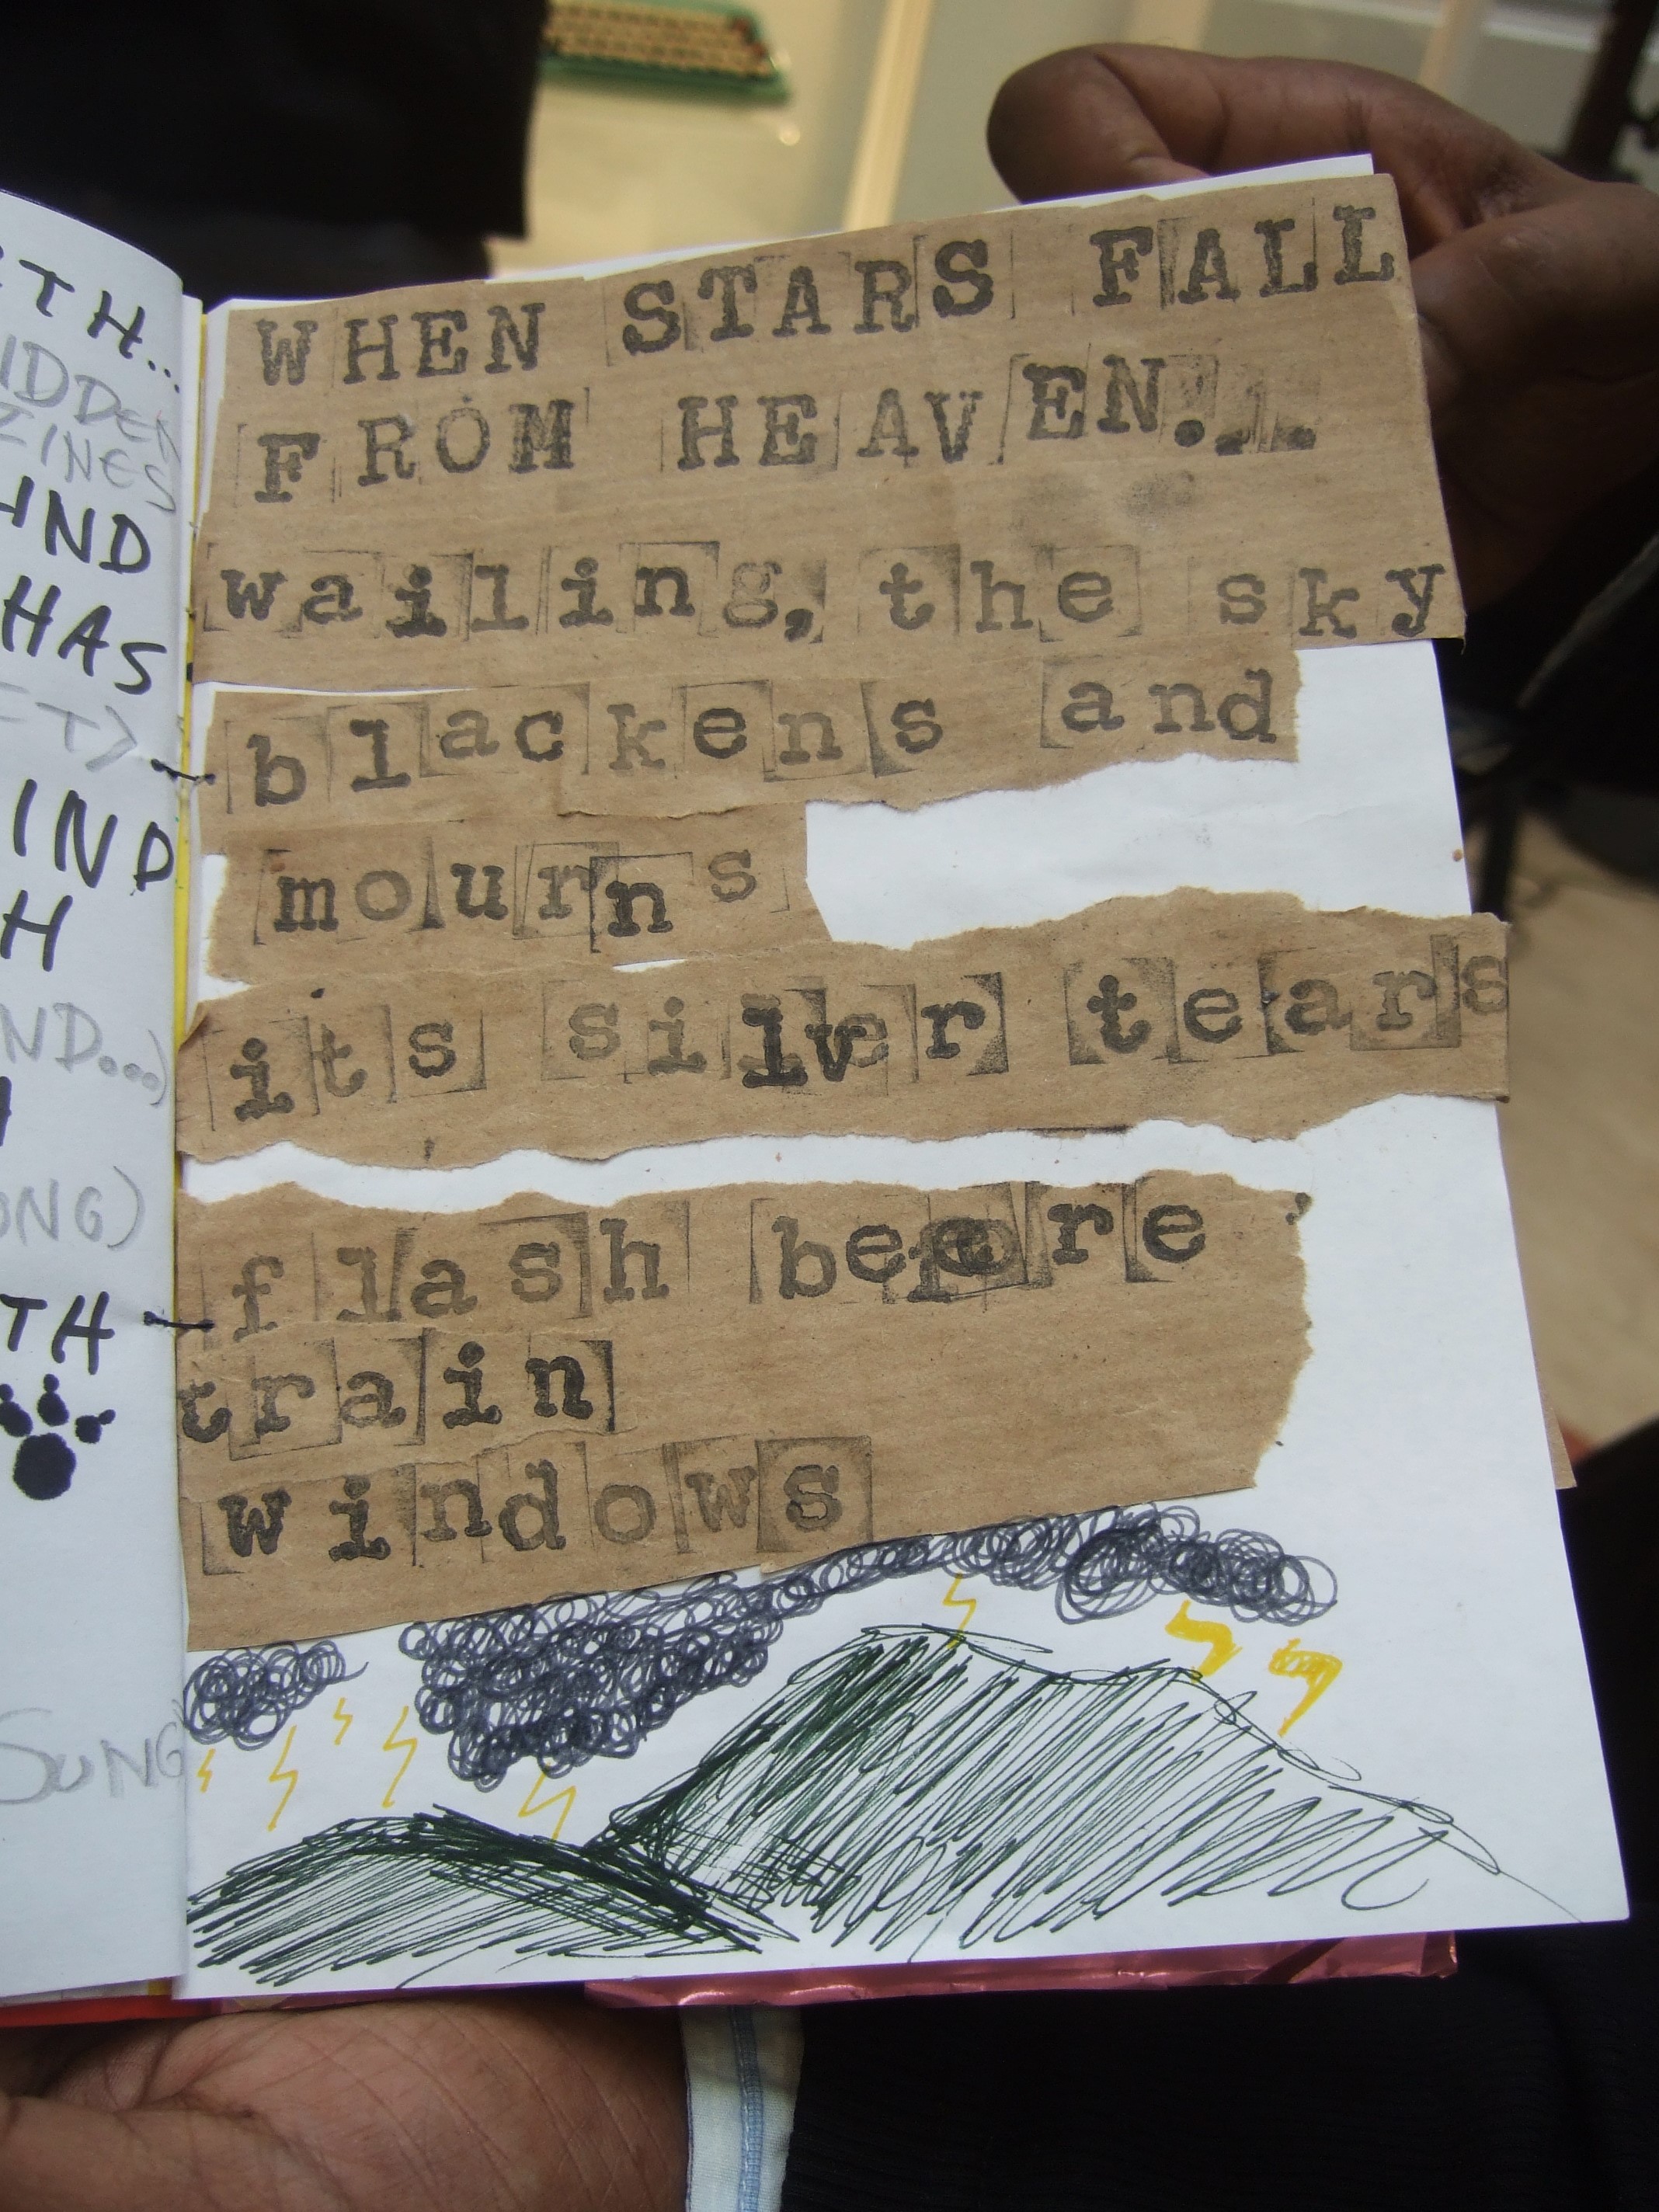 TH...
IDDEN
ZINES
HAS
IND
H
ND...)
ONG)
TH
SUNG
WHEN STARS FALL
FROM HEAVEN...
wailing, the sky
blackens and
mourns
its silver tears
flash before
train
windows